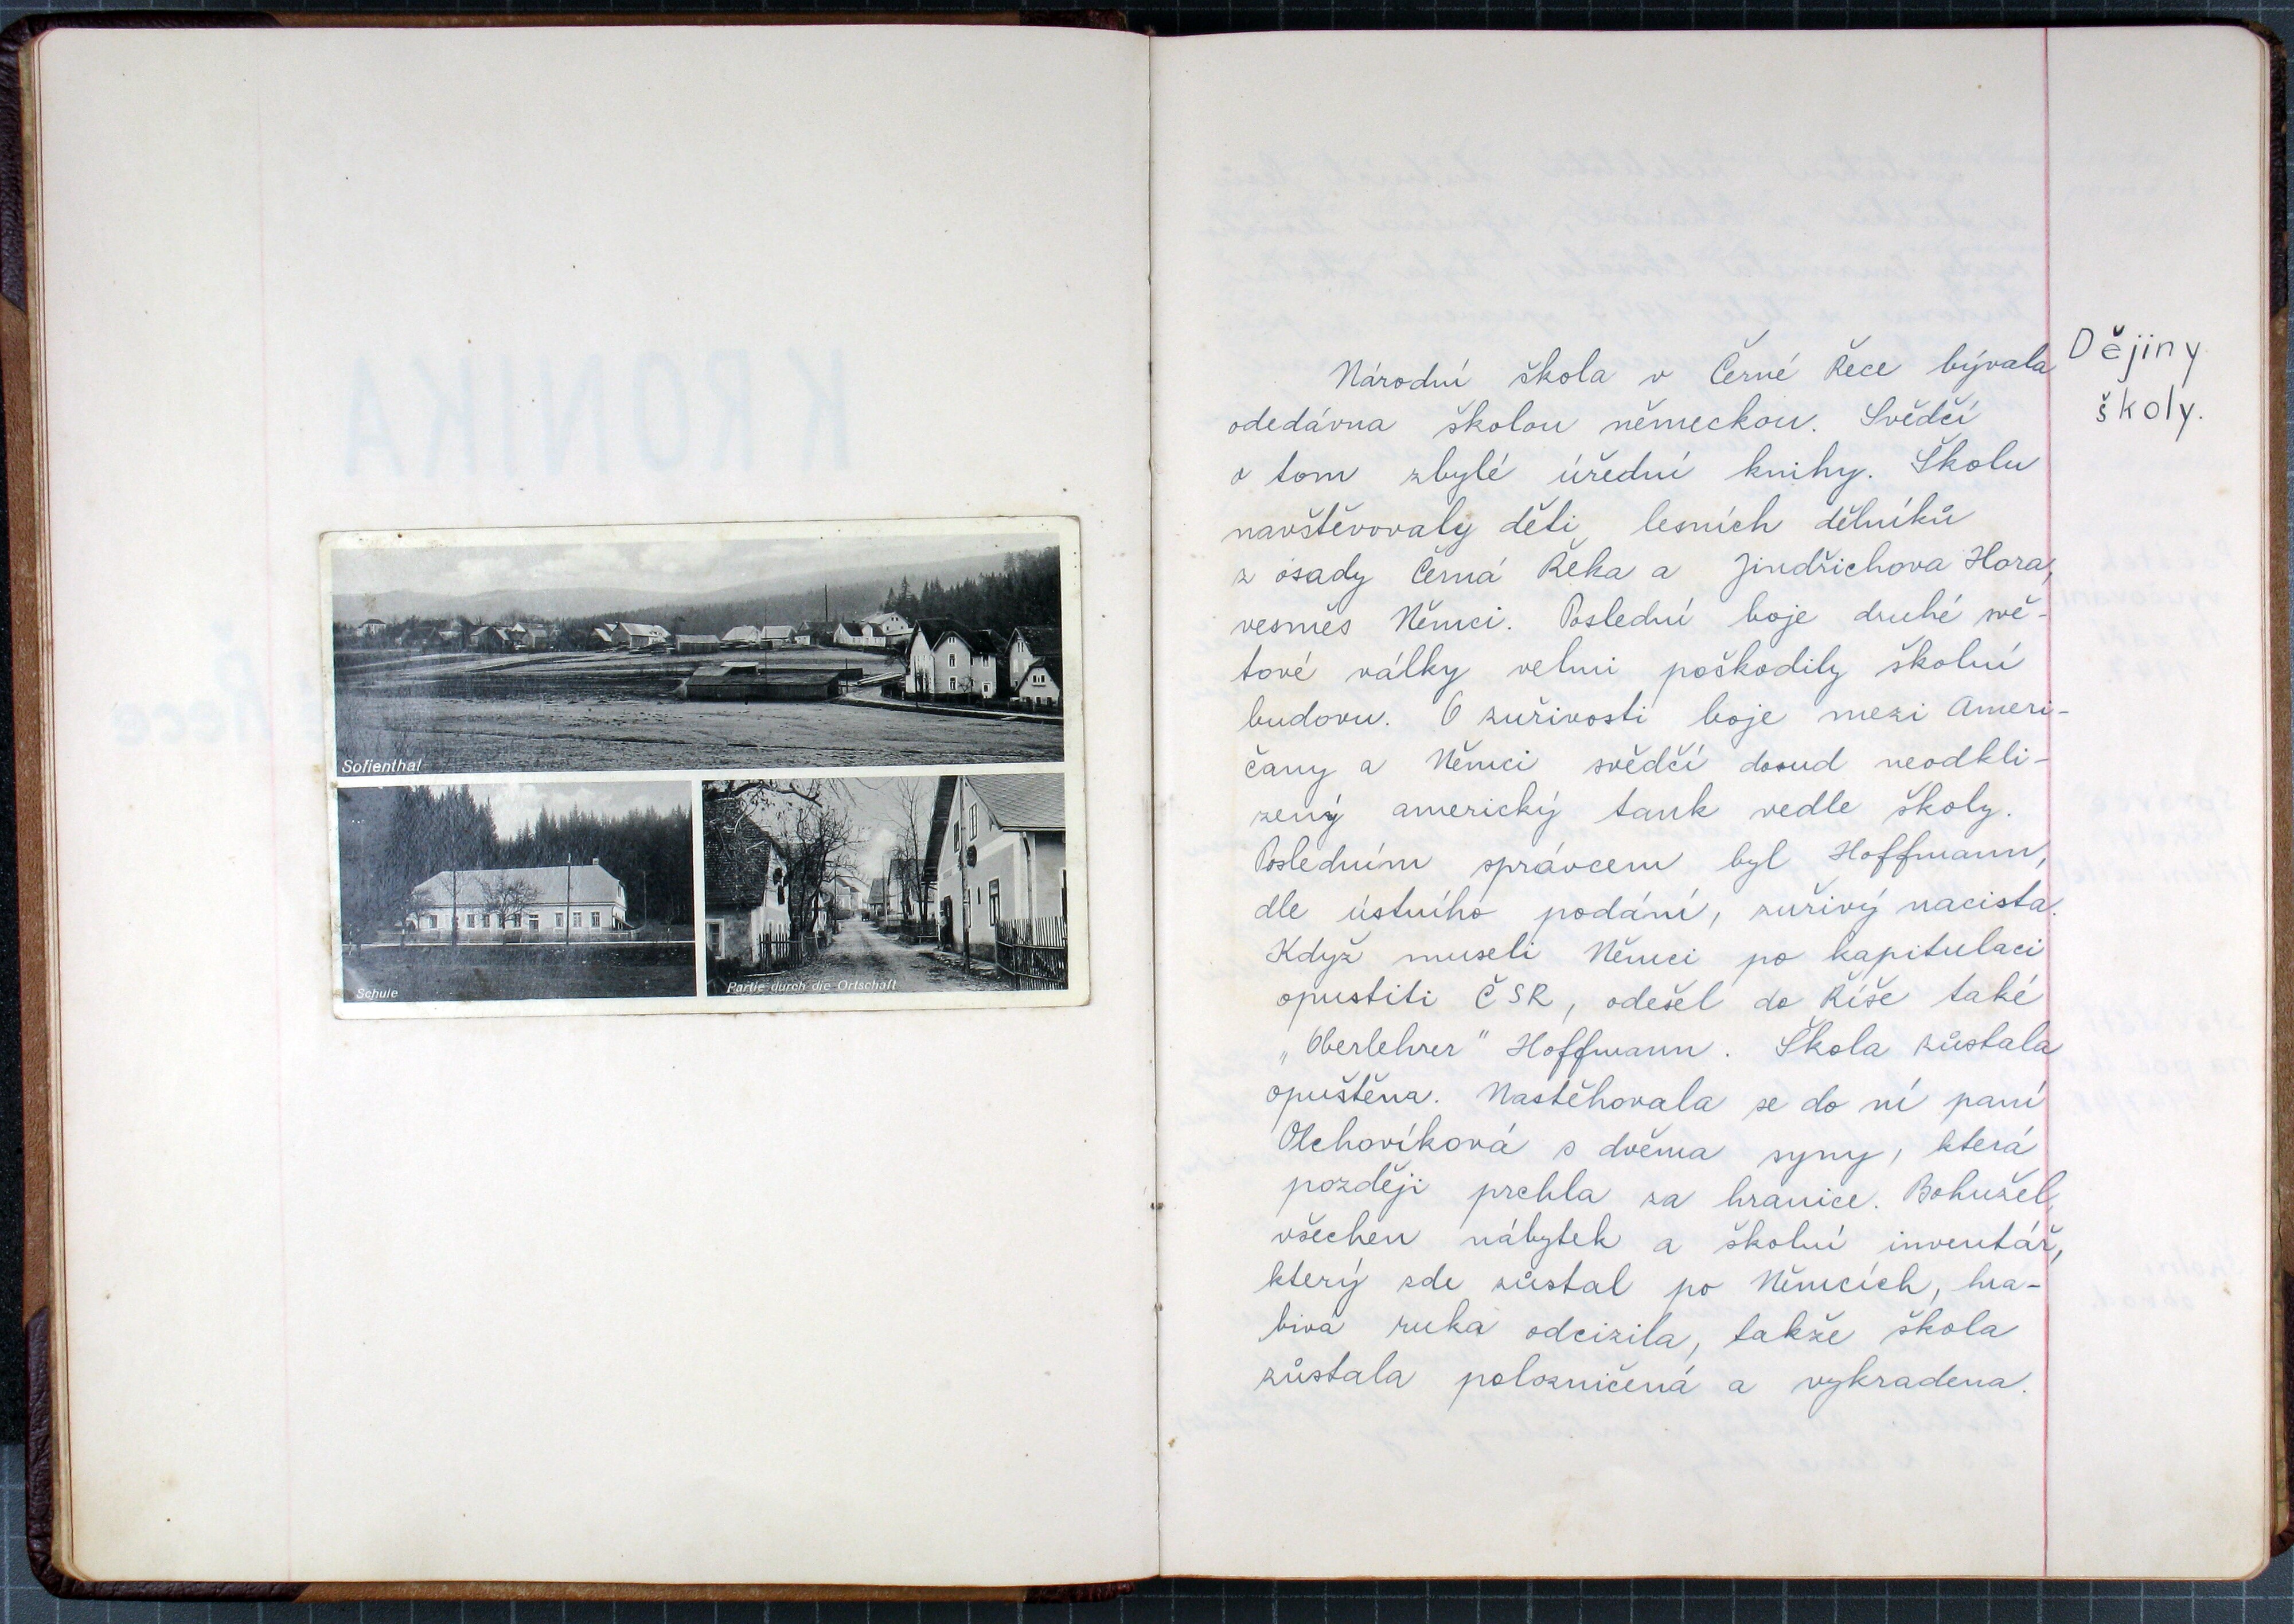 KRONIKA
Sofienthal
Schule
Partie durch die Ortschaft
Dějiny
školy.
Národní škola v Černé Řece bývala
odedávna školou německou. Svědčí
o tom zbylé úřední knihy. Školu
navštěvovaly děti lesních dělníků
z osady Černá Řeka a Jindřichova Hora,
vesměs Němci. Poslední boje druhé svě-
tové války velmi poškodily školní
budovu. O zuřivosti boje mezi Ameri-
čany a Němci svědčí dosud neodkli-
zený americký tank vedle školy.
Posledním správcem byl Hoffmann,
dle ústního podání, zuřivý nacista.
Když museli Němci po kapitulaci
opustiti ČSR, odešel do Říše také
„Oberlehrer" Hoffmann. Škola zůstala
opuštěna. Nastěhovala se do ní paní
Olchovíková s dvěma syny, která
později prchla za hranice. Bohužel,
všechen nábytek a školní inventář,
který zde zůstal po Němcích, hra-
bivá ruka odcizila, takže škola
zůstala polozničená a vykradena.